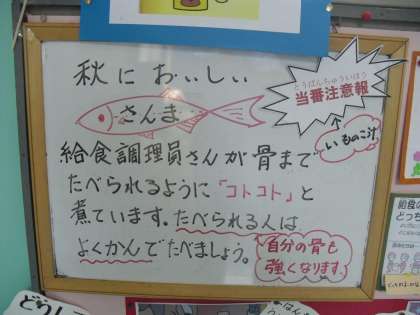 秋に おいしい
さんま
とうばんちゅういほう
当番注意報
いものこ汁
給食調理員さんが骨まで
たべられるように「コトコト」と
煮ています。たべられる人は
よくかんでたべましょう。
自分の骨も
強くなります。